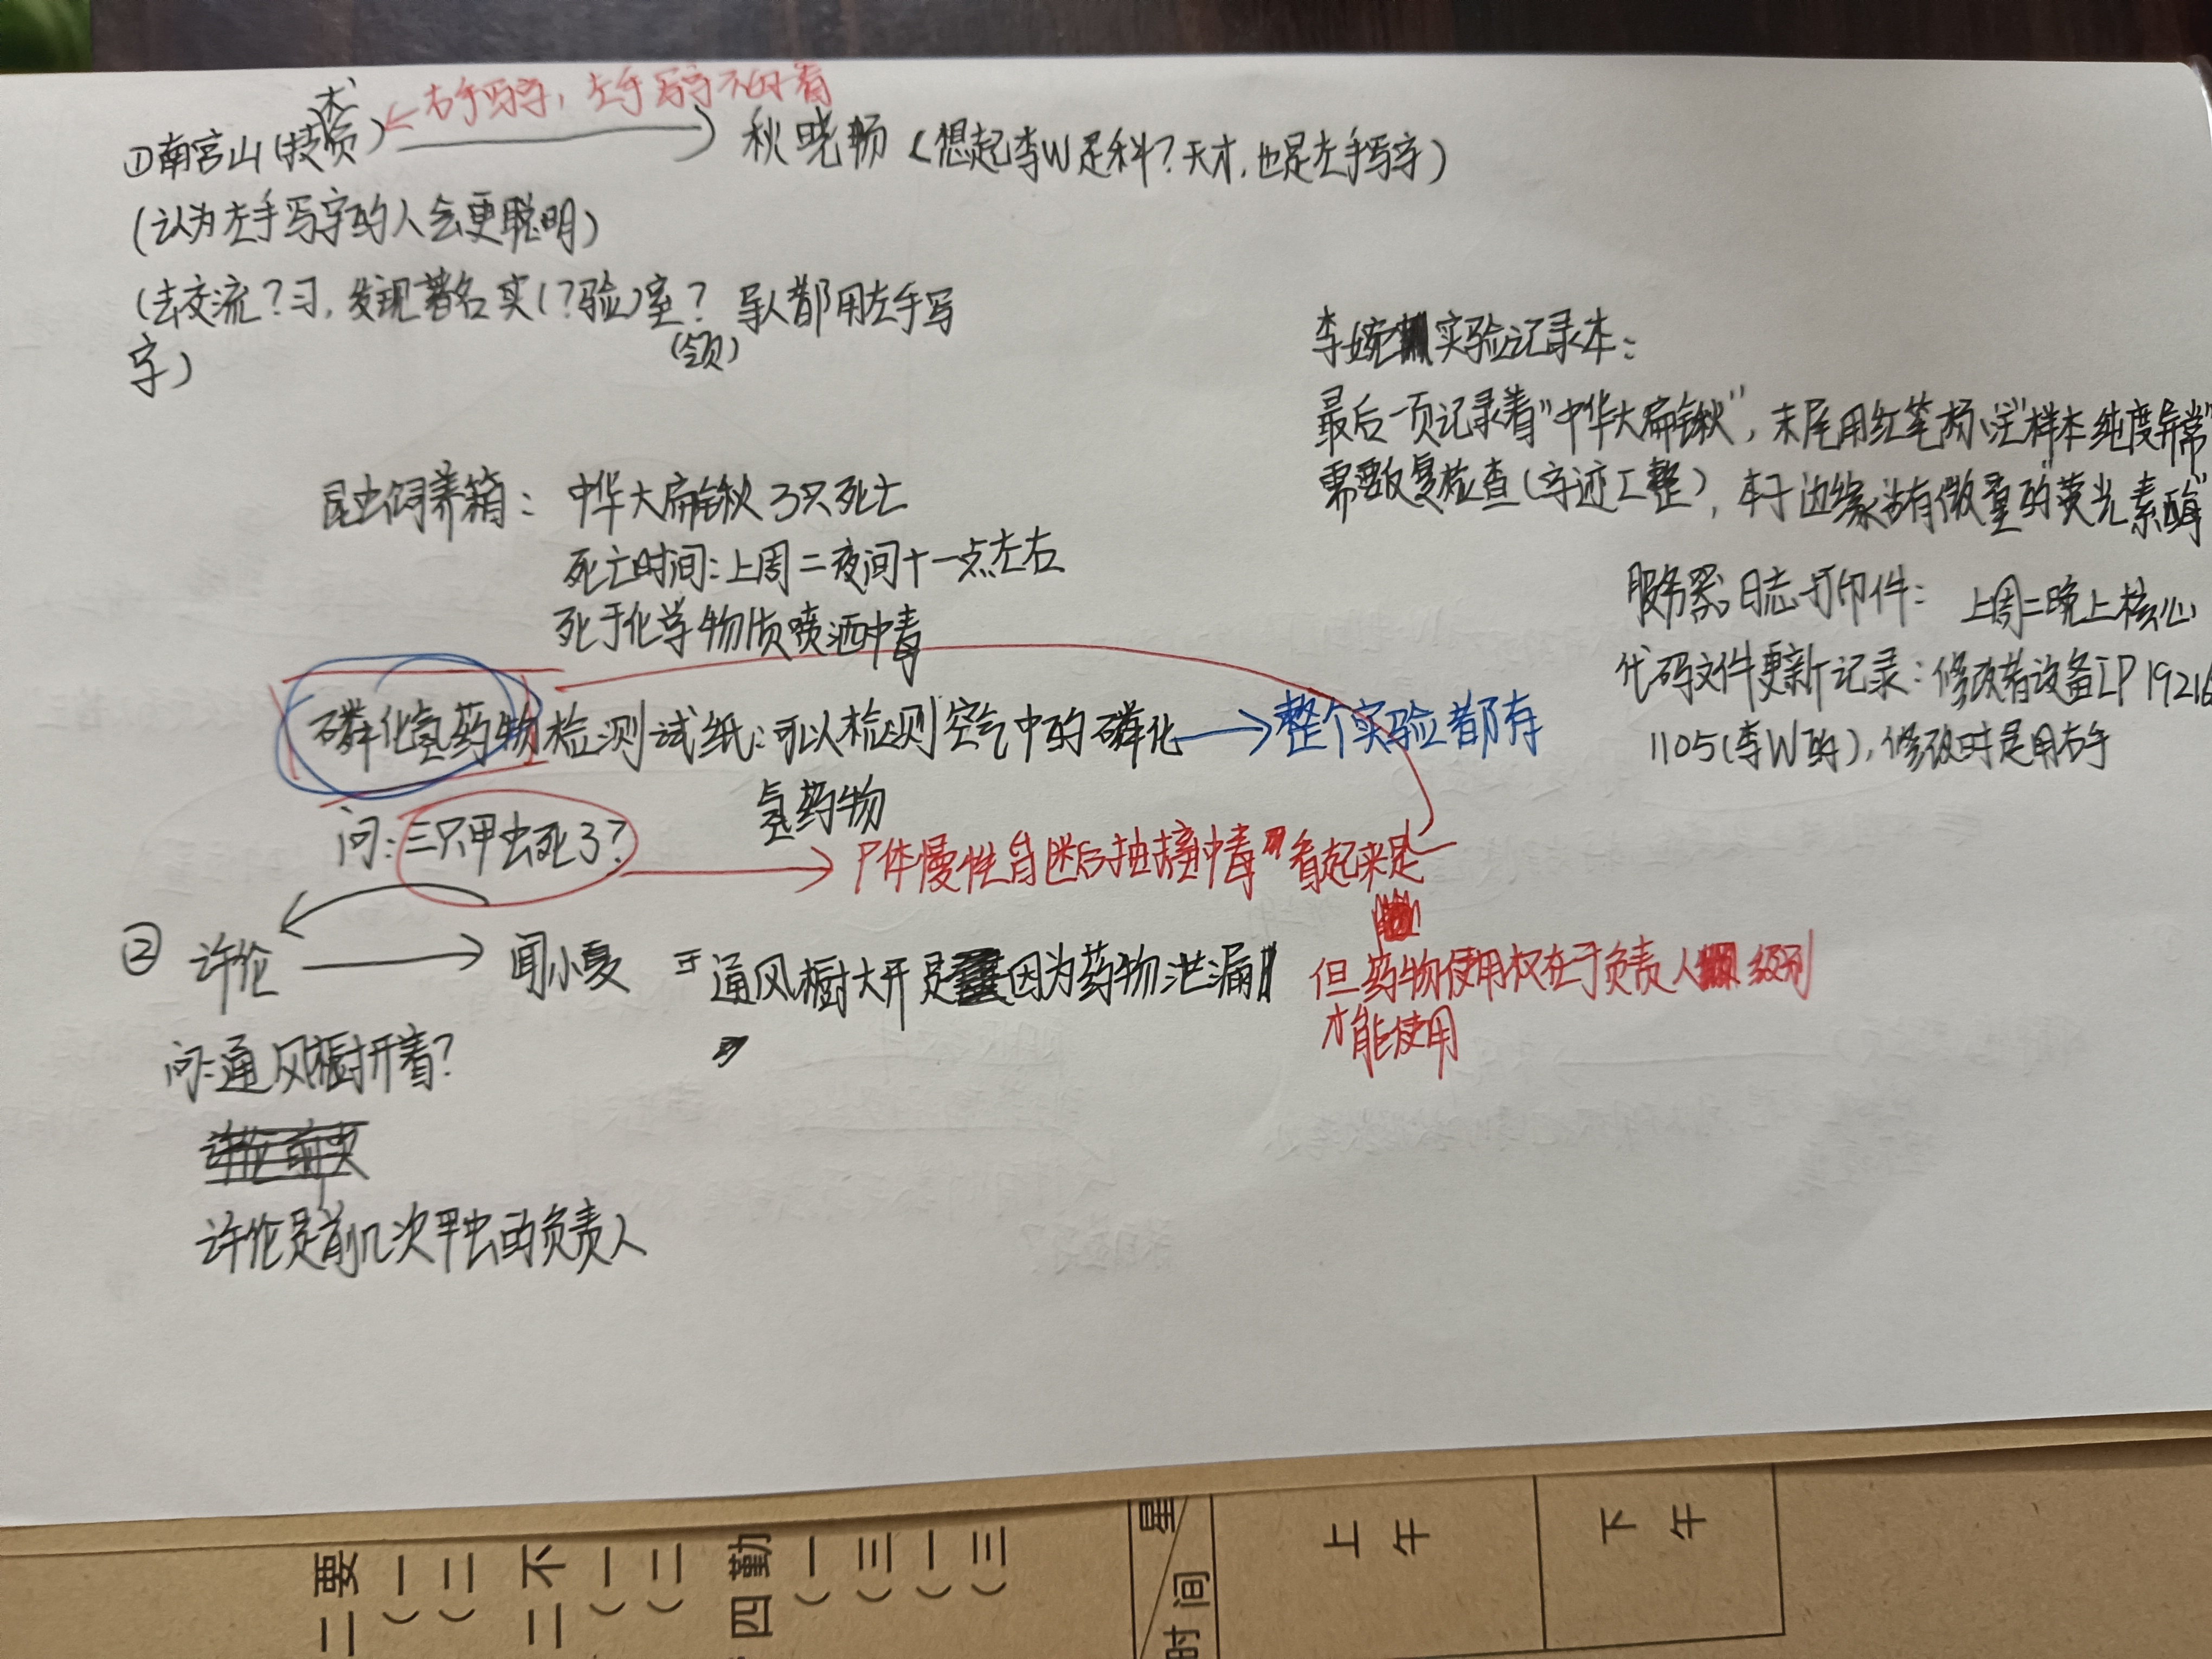 右手写字，左手写字不好看
①南宫山(技员) 秋晓畅(想起李W是科?天才,也是左手写字)
(认为左手写字的人会更聪明)
(去交流?习,发现著名实(?验)室? 导人都用左手写
(领)
字)
李婉 实验记录本:
最后一项记录着"中华大扁锹",末尾用红笔标注"样本纯度异常"
需要反复检查(字迹工整),本子边缘沾有微量的"荧光素酶"
昆虫饲养箱: 中华大扁锹3只死亡
死亡时间:上周二夜间十一点左右
死于化学物质喷洒中毒
服务器日志打印件: 上周二晚上核心
代码文件更新记录:修改着设备IP 19216
1105(李W的),修改时是用右手
磷化氢药物检测试纸:可以检测空气中的磷化
氢药物
整个实验都有
问:三只甲虫死了?
体慢性 后抽搐中毒"看起来是
② 许伦 闻小夏 通风橱大开是因为药物泄漏
但药物使用权在于负责人级别
才能使用
问:通风橱开着?
许伦是前几次甲虫的负责人
二要
(一
(二
二不
(一
(二
四勤
(一
(三
(一
(三
星
时间
上午
下午